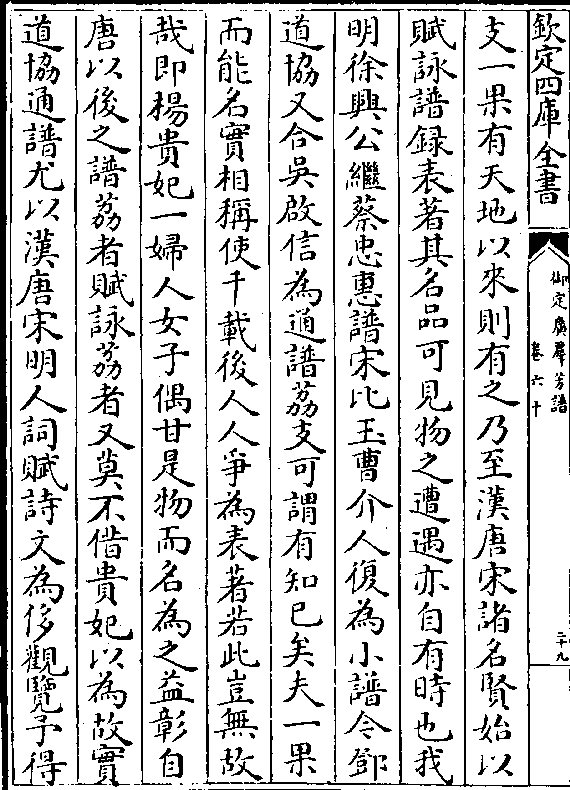 欽定四庫全書
御定廣群芳譜
卷六十
二十九
支一果有天地以來則有之乃至漢唐宋諸名賢始以
賦詠譜録表著其名品可見物之遭遇亦自有時也我
明徐興公繼蔡忠惠譜宋比玉曹介人復為小譜今鄧
道協又合吳啟信為通譜荔支可謂有知已矣夫一果
而能名實相稱使千載後人人爭為表著若此豈無故
哉即楊貴妃一婦人女子偶甘是物而名為之益彰自
唐以後之譜荔者賦詠荔者又莫不借貴妃以為故實
道協通譜尤以漢唐宋明人詞賦詩文為侈觀覽予得